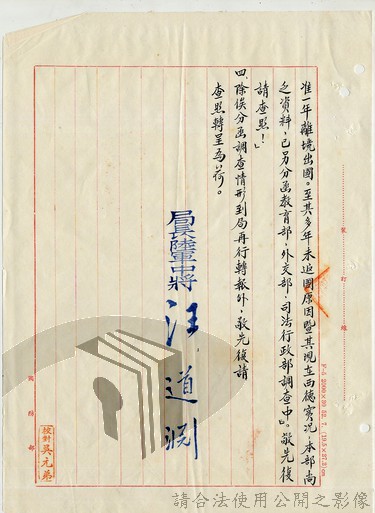 准一年離境出國。至其多年未返國原因暨其現在西德實況,本部尚
乏資料,已另分函教育部,外交部,司法行政部調查中』。敬先復
請查照!」
四、除俟分函調查情形到局再行轉報外,敬先復請
查照轉呈為荷。
局長陸軍中將汪道淵
校對吳元弟
裝訂線
請合法使用公開之影像